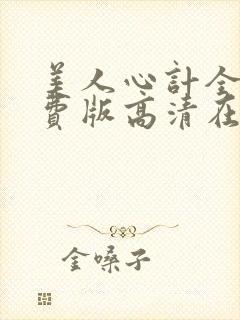 美人心计全
费版高清在
金嗓子